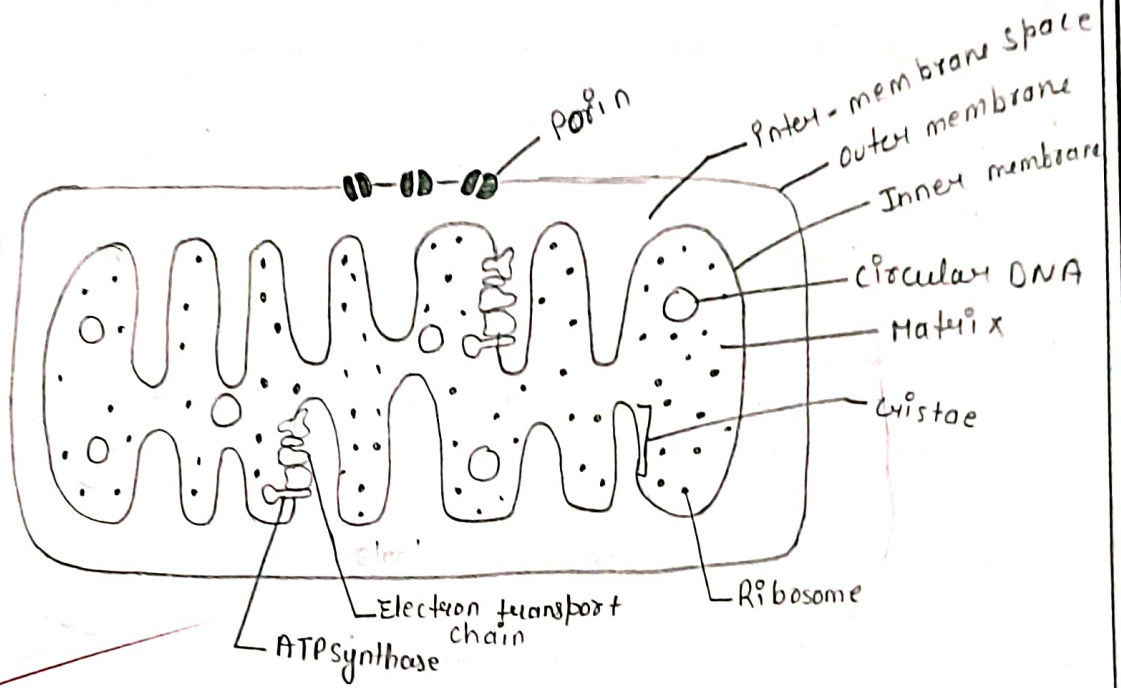 Porin
Inter-membrane space
Outer membrane
Inner membrane
Circular DNA
Matrix
Cristae
Ribosome
Electron transport
chain
ATP synthase